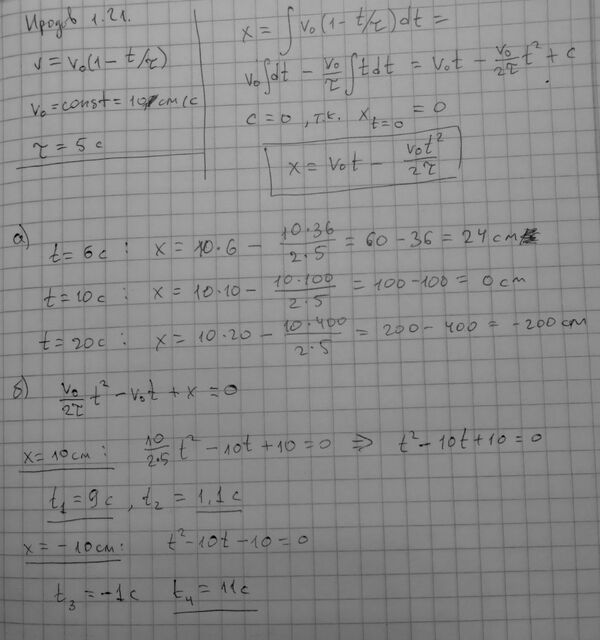 Иродов 1.21.
v = v₀(1 - t/τ)
v₀ = const = 10 см/с
τ = 5 с
x = ∫ v₀(1 - t/τ) dt =
v₀∫dt - v₀/τ ∫t dt = v₀t - v₀/2τ t² + c
c = 0, т.к. x_{t=0} = 0
x = v₀t - v₀t²/2τ
а)
t = 6с : x = 10·6 - 10·36/2·5 = 60 - 36 = 24 см
t = 10с : x = 10·10 - 10·100/2·5 = 100 - 100 = 0 см
t = 20с : x = 10·20 - 10·400/2·5 = 200 - 400 = -200 см
б) v₀/2τ t² - v₀t + x = 0
x = 10 см : 10/2·5 t² - 10t + 10 = 0 ⇒ t² - 10t + 10 = 0
t₁ = 9с, t₂ = 1,1с
x = -10 см : t² - 10t - 10 = 0
t₃ = -1с t₄ = 11с